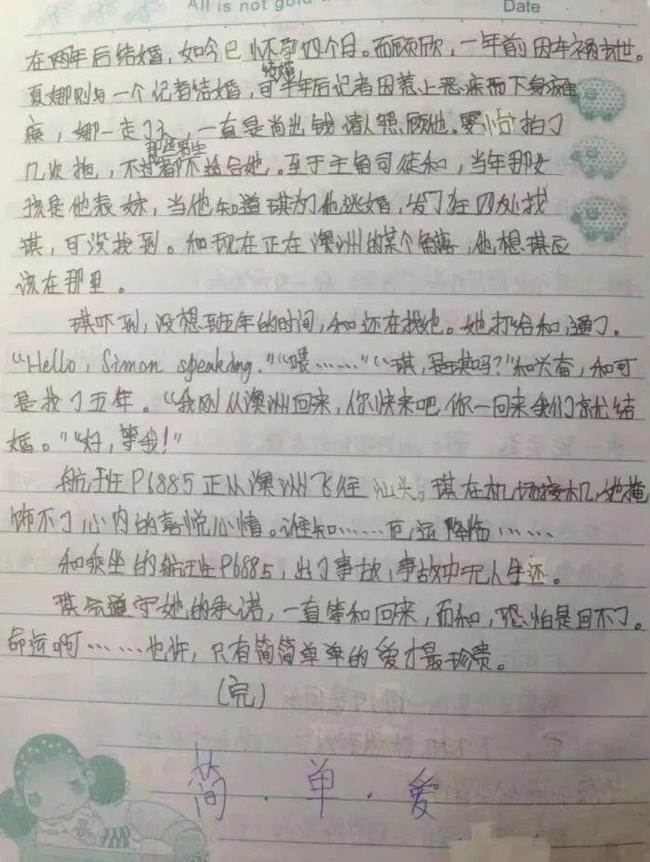 All is not gold
Date
在两年后结婚，如今已怀孕四个月。而顾欣，一年前因车祸去世。
结婚
夏娜则与一个记者结婚，可半年后记者因惹上恶疾而下身瘫
痪，娜一走了之，一直是尚出钱请人照顾他。雯怡拍了
那些男生
几次拖，不过都不适合她。至于主角司徒和，当年那女
孩是他表妹，当他知道琪为了他逃婚，发了狂四处找
琪，可没找到。和现在正在澳洲的某个角落，他想琪应
该在那里。
琪吓到，没想五年的时间，和还在找她。她打给和，通了。
“Hello, Simon speaking.”“喂……”“琪，是琪吗？”和兴奋，和可
是找了五年。“我刚从澳洲回来，你快来吧，你一回来我们就结
婚。”“好，等我！”
航班P6885正从澳洲飞往汕头，琪在机场接机，她掩
饰不了心内的喜悦心情。谁知……厄运降临……
和乘坐的航班P6885，出了事故，事故中无人生还。
琪会遵守她的承诺，一直等和回来，而和，恐怕是回不了。
命运啊……也许，只有简简单单的爱才最珍贵。
（完）
简·单·爱